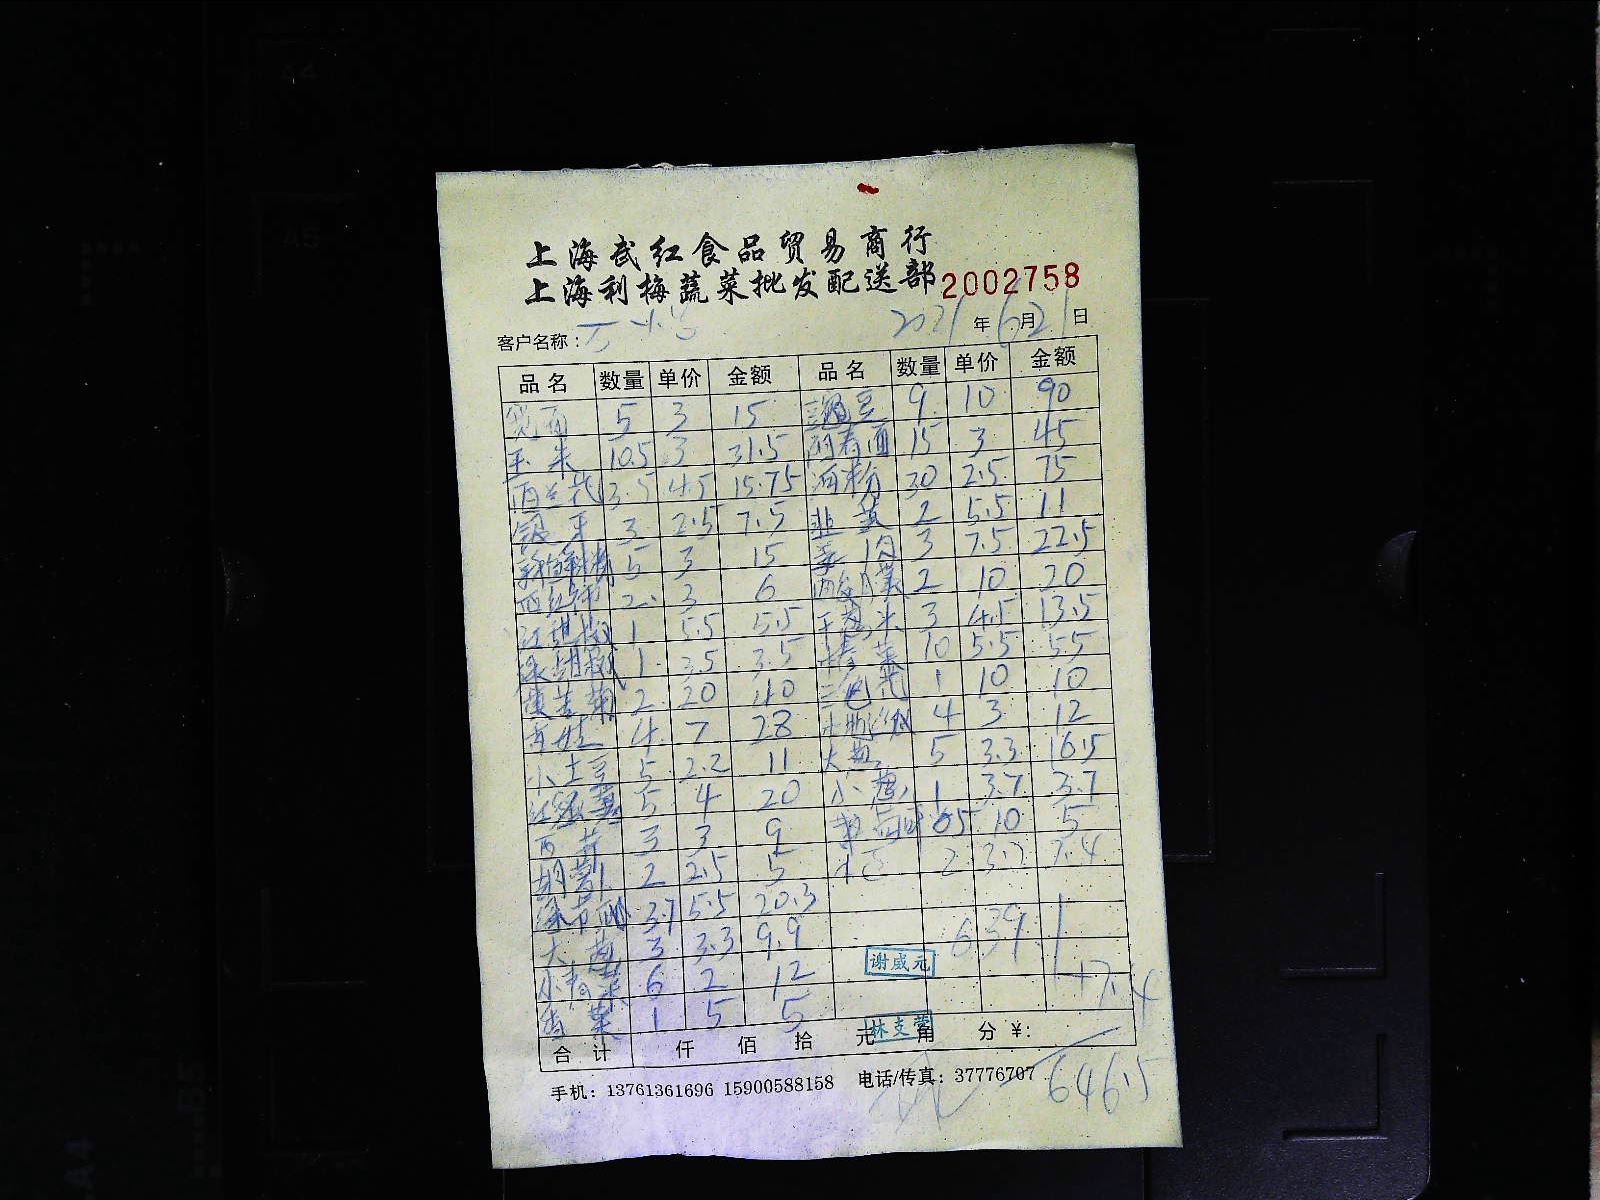 上海武红食品贸易商行
上海利梅蔬菜批发配送部 2002758
客户名称： 2021年6月21日
品名 数量 单价 金额 品名 数量 单价 金额
5 3 15 豌豆 9 10 90
玉米 10.5 3 31.5 阳春面 15 3 45
西兰花 3.5 4.5 15.75 河粉 30 2.5 75
银牙 3 2.5 7.5 韭菜 2 5.5 11
5 3 15 3 7.5 22.5
西红柿 2 3 6 酸菜 2 10 20
红甜椒 1 5.5 5.5 3 4.5 13.5
绿甜椒 1 3.5 3.5 榨菜 10 5.5 55
黄苦菊 2 20 40 1 10 10
4 7 28 4 3 12
小土豆 5 2.2 11 大葱 5 3.3 16.5
5 4 20 小葱 1 3.7 3.7
3 3 9 0.5 10 5
2 2.5 5 2 3.7 7.4
3.7 5.5 20.3
大葱 3 3.3 9.9 639.1
小青菜 6 2 12 +7.4
香菜 1 5 5
谢威元
合计 仟 佰 拾 元 角 分 ¥:
手机：13761361696 15900588158 电话/传真：37776707
646.5